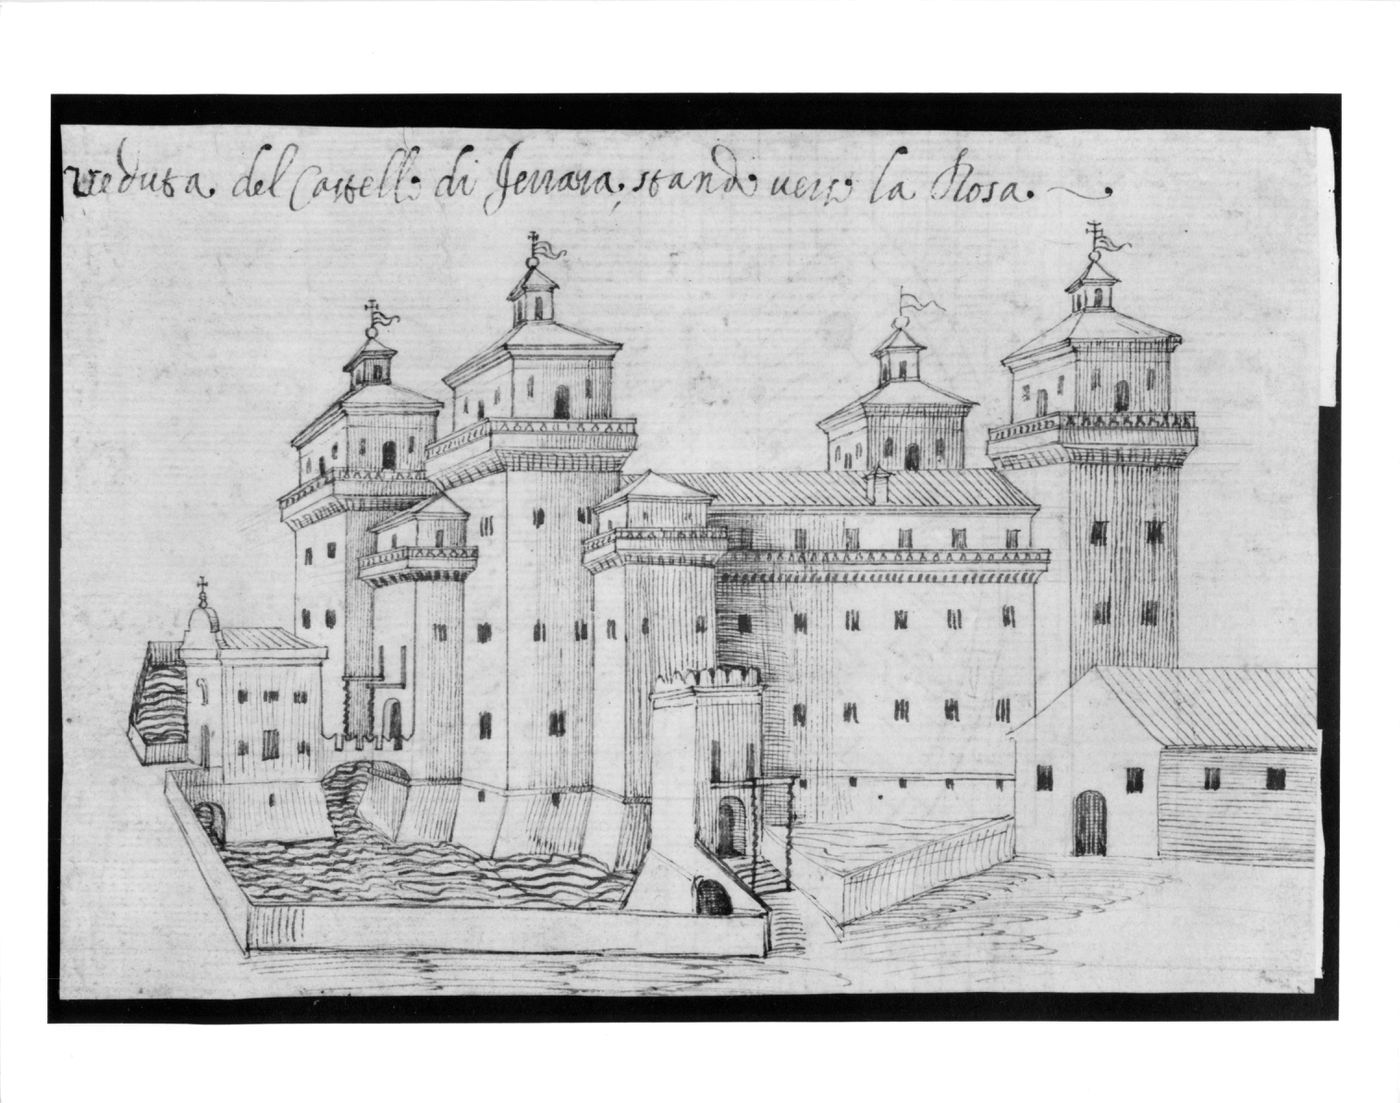 Veduta del Castello di Ferrara, stando verso la Rosa.